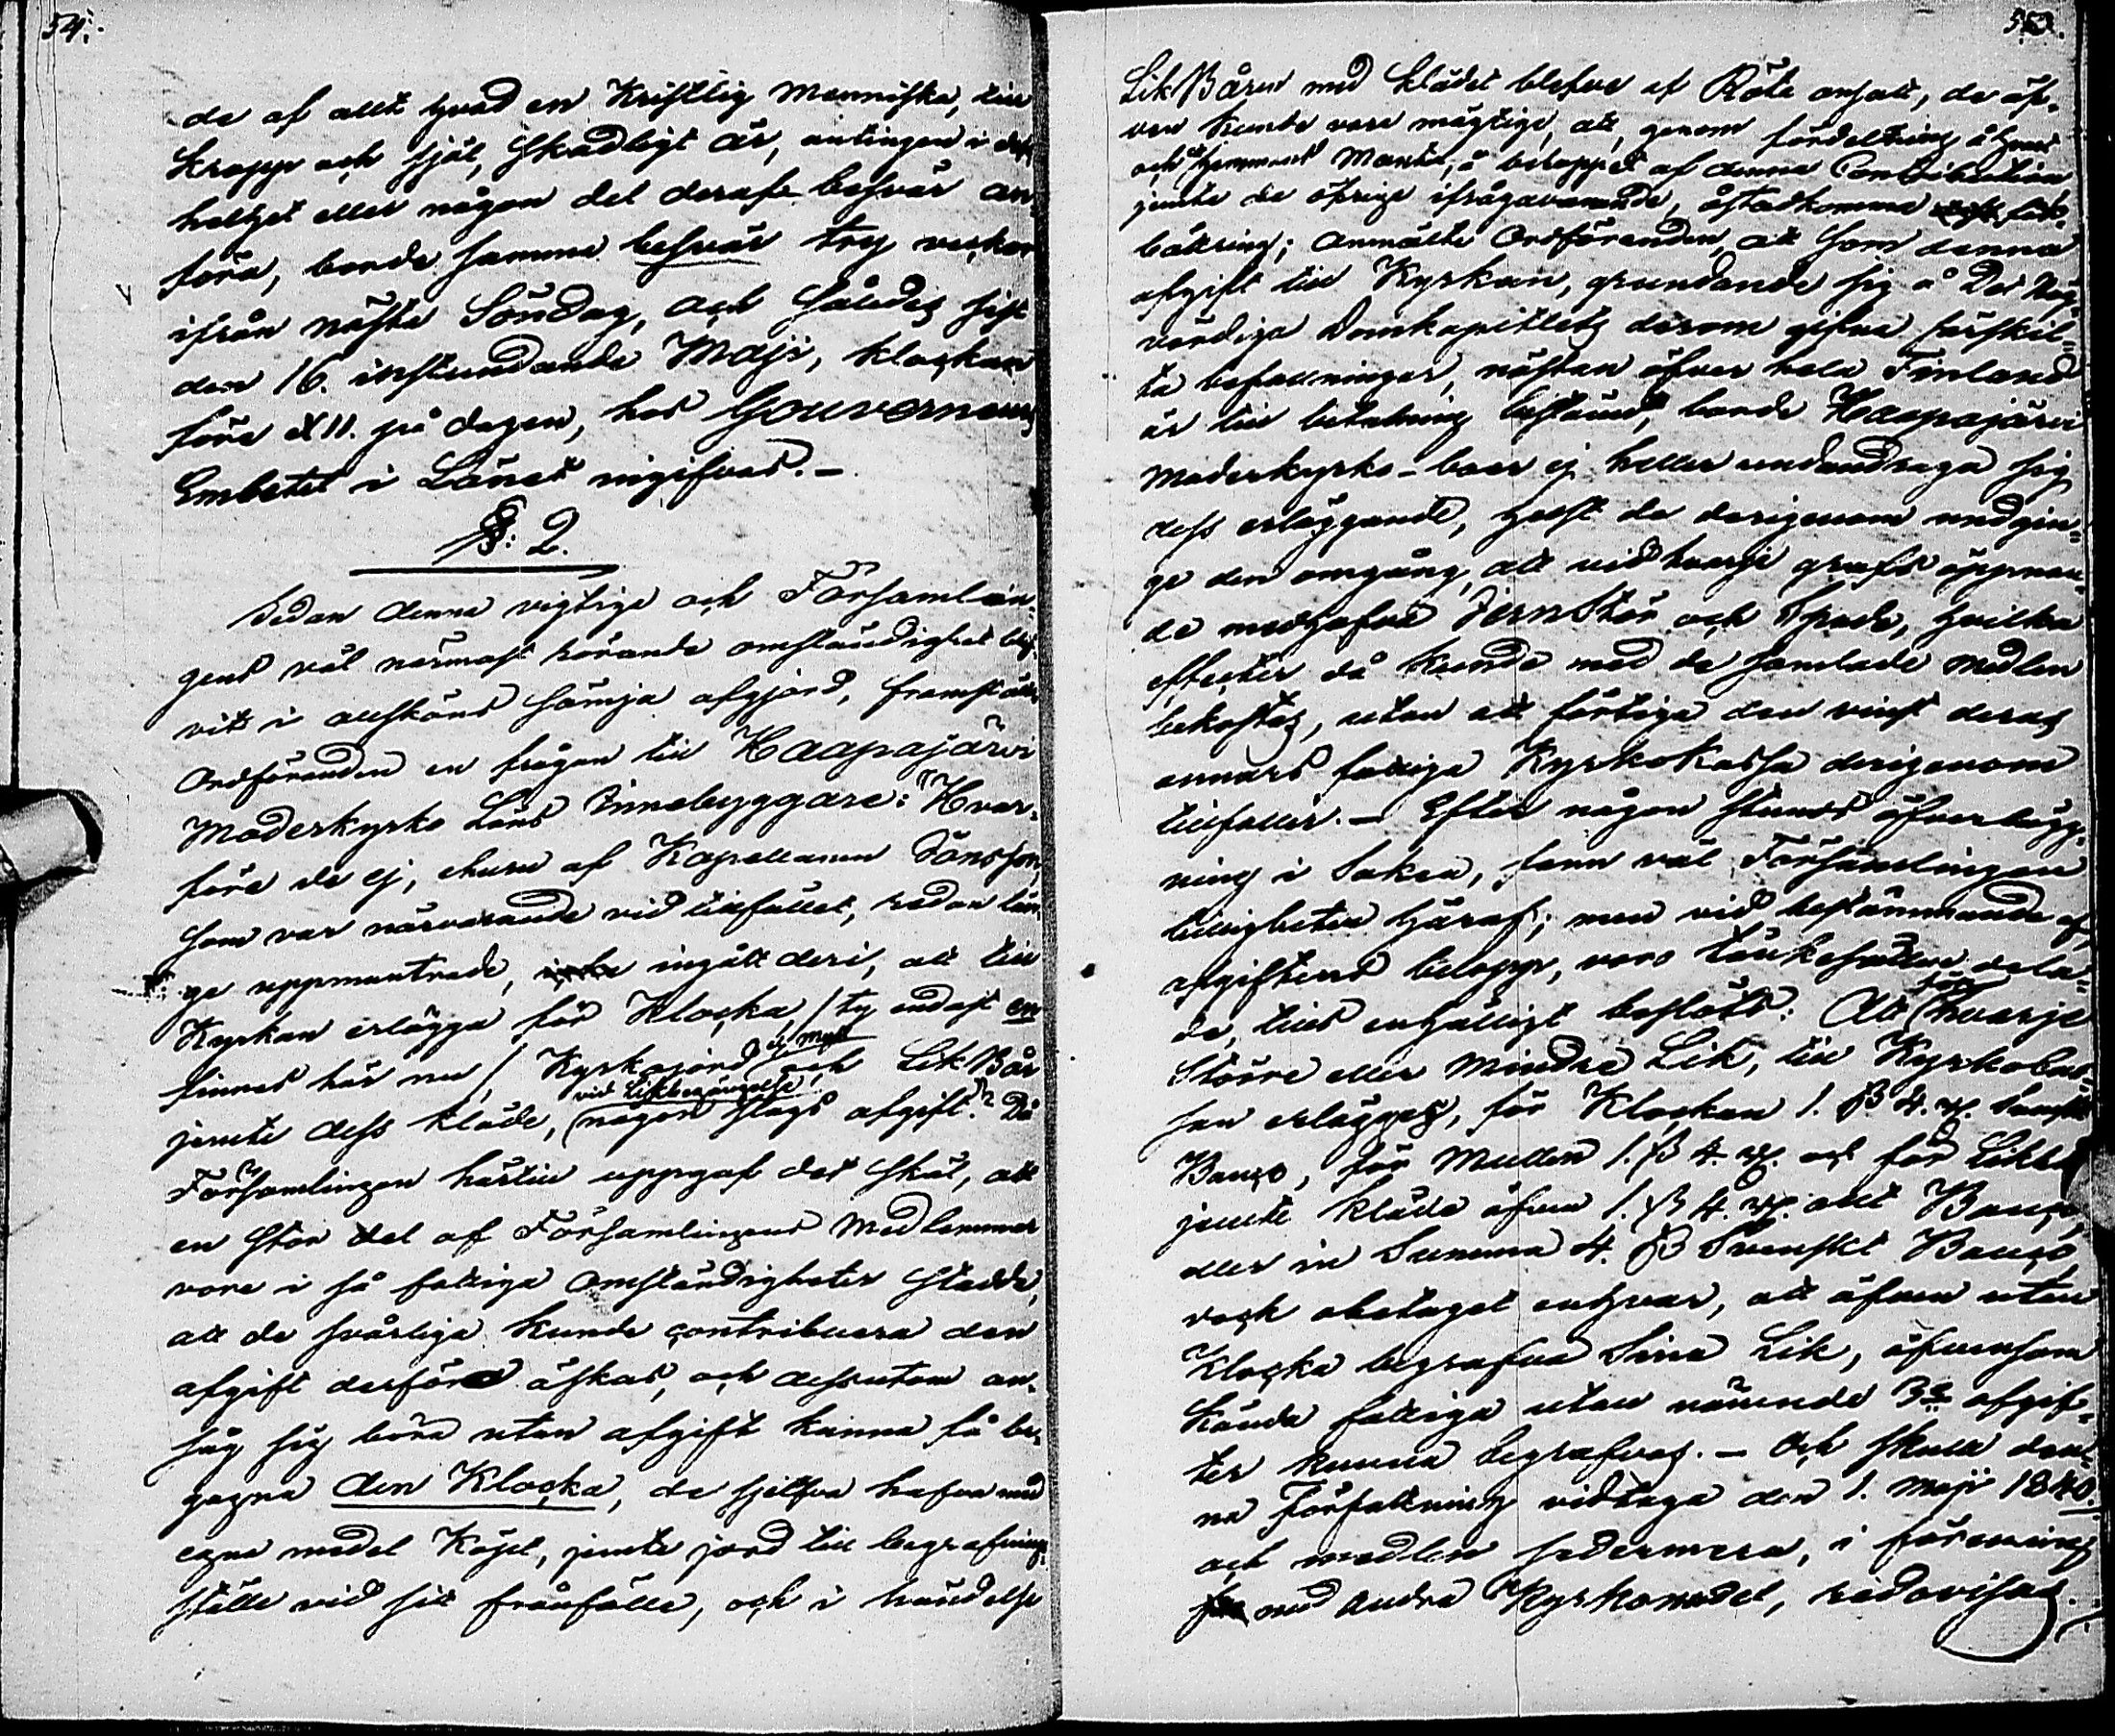 54.
de af allt hvad en Kristlig Menniska, till
kropp och själ, skadligt är, antingen i dess
helhet eller någon del deraf besvär an-
föra, borde samma besvär try veckor
ifrån nästa Söndag, och således sist
den 16. instundande Maji, klockan
före XII. på dagen, hos Gouverneurs
Embetet i Länet ingifvas.-
§: 2.
Sedan denna vigtiga och Församlin-
gens väl närmast rörande omständighet bli-
vit i allsköns sämja afgjord, framstälde
Ordföranden en frågan till Haapajärvi
Moderkyrko Läns Innebyggare: "Hvar-
före de ej, ehuru af Kapellanen Jansson,
som var närvarande vid tillfället, redan län-
ge uppmuntrade, ingått deri, att till
Kyrkan erlägga för Klocka, / ty endast en
finnes här nu / Kyrkojord & mull och Lik Bår
jemte dess kläde, (vid Likbegängelse) någon slags afgift? Då
Församlingen härtill uppgaf det skäl, att
en stor del af Församlingens Medlemmar
vore i så fattiga omständigheter stadde,
att de svårliga kunde contribuera den
afgift derföre äskas, och dessutom an-
såg sig böra utan afgift kunna få be-
gagna den Klocka, de sjelfva hafva med
egna medel köpt, jemte jord till begrafnings-
ställe vid sitt frånfälle, och i händelse
55.
Lik Båren med klädet blefve af Röta ansatt, de äf-
ven kunde vara mägtige, att, genom fördelning å hvart
och hemmans Mantal, å beloppet af denna Contribution
jemte de öfrige ifrågavarande, åstadkomma för-
bättring; anmälte Ordföranden, att som denna
afgift till Kyrkan, grundande sig å Det Hög-
vördiga Domkapitlets derom gifna särskil-
ta befallningar, nästan öfver hela Finland
är till betalning bestämd, borde Haapajärvi
Moderkyrko-boer ej heller undandraga sig
dess erläggande, helst de derigenom undgin-
ge den omgång, att vid hvarje grafs öppnan-
de medhafva Jern Stör och Spade, hvilka
effecter då kunde med de samlade medlen
bekostas, utan att förtiga den vinst deras
annars fattiga KyrkoKassa derigenom
tillfaller. - Efter någon stunds öfverlägg-
ning i Saken, fann väl Församlingen
billigheten häraf; men vid bestämmande af
afgiftens belopp, voro tänkesätten dela-
de, tills enhälligt beslöts: Att för hvarje
Större eller Mindre Lik, till Kyrkokas-
san erlägges, för Klockan 1. ß 4. rst. Svenskt
Banco, för Mullen 1. ß 4. rst. och för Likbår
jemte kläde äfven 1. ß 4. rst. allt Banco,
eller in Summa 4. ß Svenskt Banco,
dock obetaget enhvar, att äfven utan
Klocka begrafva Sina Lik, äfvensom
Kända fattiga utan nämnde 3ne afgif-
ter kunna begrafvas. - Och skulle den-
na Författning vidtaga den 1. Maji 1840.
och medlen sedermera, i förening
med andra Kyrkomedel, redovisas.